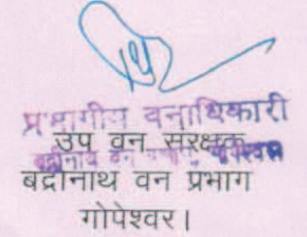 प्रभागीय वनाधिकारी
उप वन संरक्षक
बद्रीनाथ वन प्रभाग गोपेश्वर
बद्रीनाथ वन प्रभाग
गोपेश्वर।